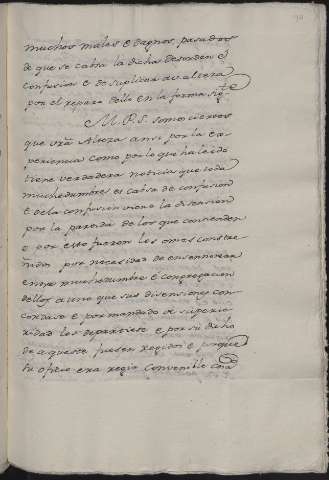 muchos males e dagnos pasados
de que se cabsa la dicha desorden é
confusion e de suplicar a su alteza
por el reparo dello en la forma sig.te
M. P. S. somo ciertos
que vra Alteza ansi por la es-
periencia como por lo que ha leido
tiene verdadera noticia que toda
muchedumbre es cabsa de confusion
e de la confusion viene la disension
por la partida de los que contienden
e por esto fueron los omes constre-
ñidos por necesidad de ensennorear
entre muchedumbre e congregacion
dellos a uno que sus disensiones con-
cordase e por mandado de superio-
ridad los departiese e por su dicho
de aqueste fuesen regidos e porque
tu oficio era regir convenible cosa